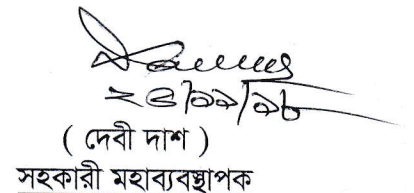 ২৫/১১/১৮
( দেবী দাশ )
সহকারী মহাব্যবস্থাপক